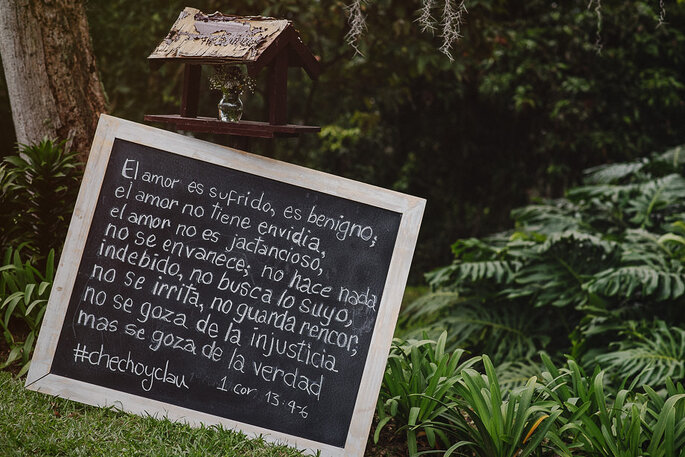 El amor es sufrido, es benigno;
el amor no tiene envidia,
el amor no es jactancioso,
no se envanece; no hace nada
indebido, no busca lo suyo,
no se irrita, no guarda rencor;
no se goza de la injusticia
mas se goza de la verdad
#chechoyclau 1 cor 13.4-6